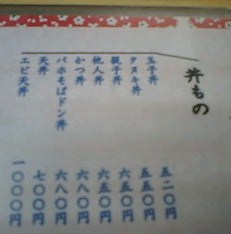 丼もの
玉子丼 五二〇円
タヌキ丼 五五〇円
親子丼 六五〇円
他人丼 六五〇円
かつ丼 六八〇円
バホそばドン丼 六八〇円
天丼 七〇〇円
エビ天丼 一〇〇〇円